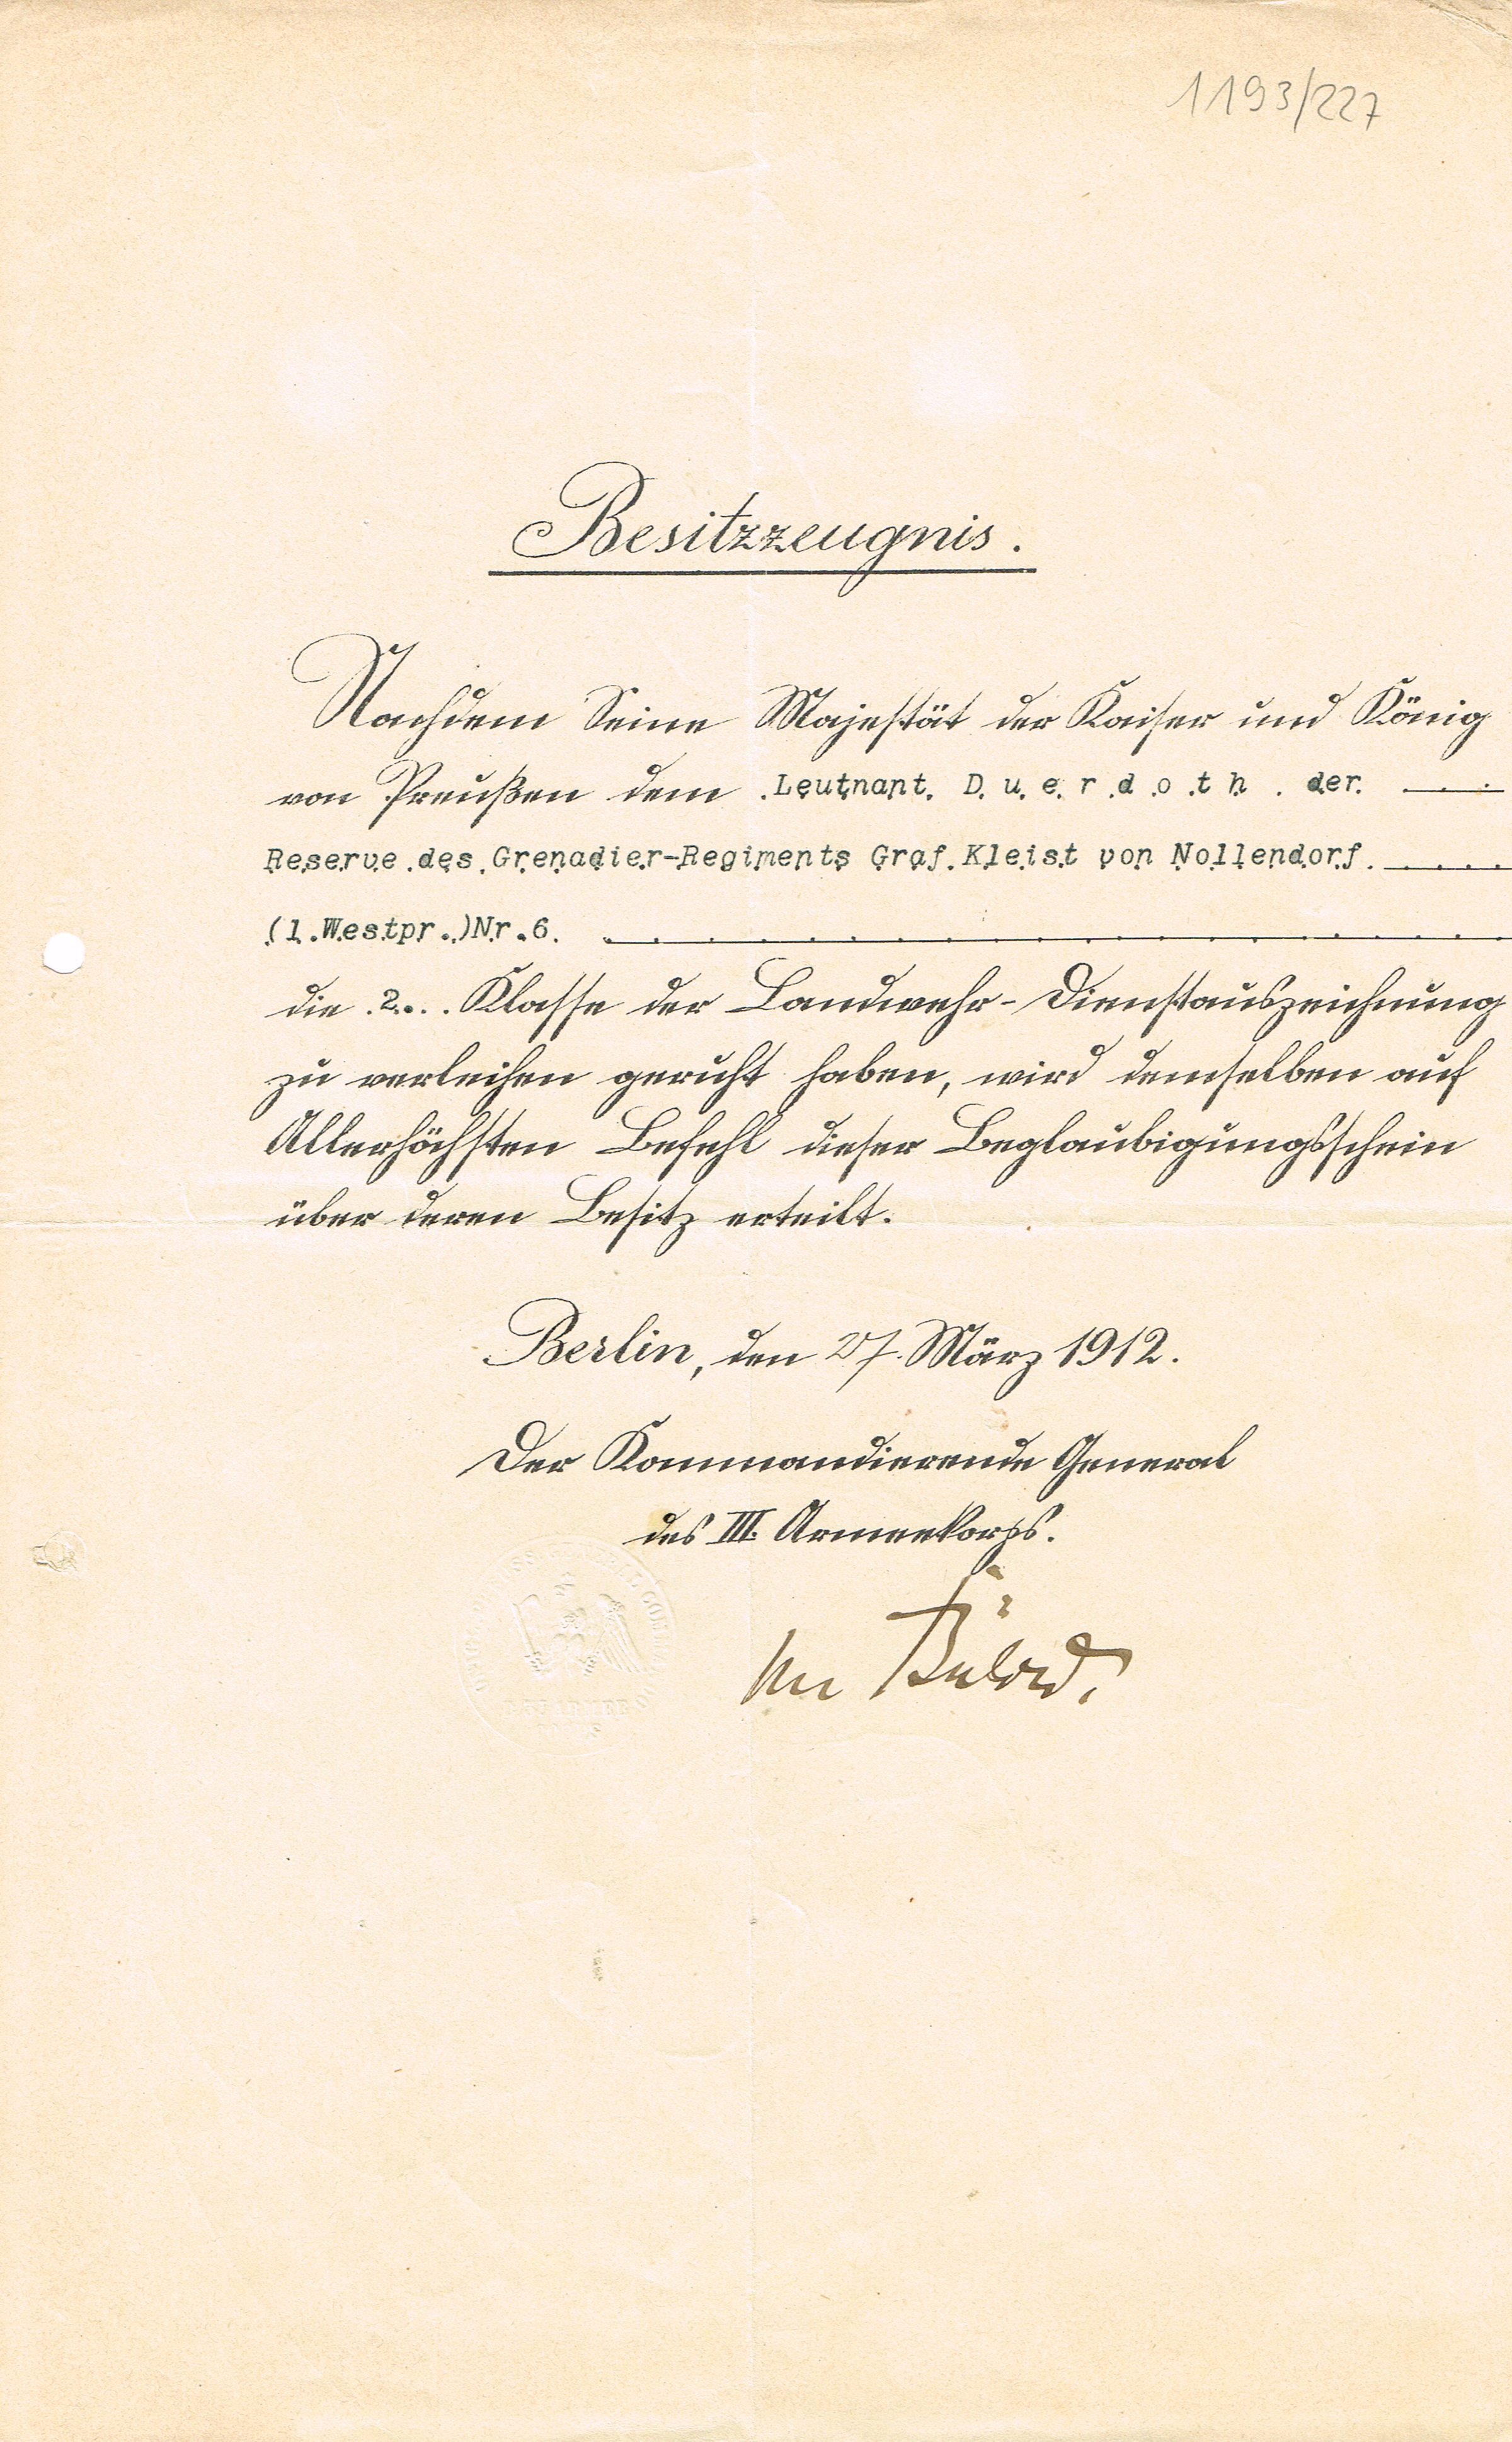 1193/227
Besitzzeugnis.
Nachdem Seine Majestät der Kaiser und König
von Preußen dem Leutnant D u e r d o t h der
Reserve des Grenadier-Regiments Graf Kleist von Nollendorf
(1.Westpr.)Nr.6.
die 2. Klasse der Landwehr-Dienstauszeichnung
zu verleihen geruht haben, wird demselben auf
Allerhöchsten Befehl dieser Beglaubigungsschein
über deren Besitz erteilt.
Berlin, den 27. März 1912.
Der Kommandierende General
des III. Armeekorps.
von Bülow.